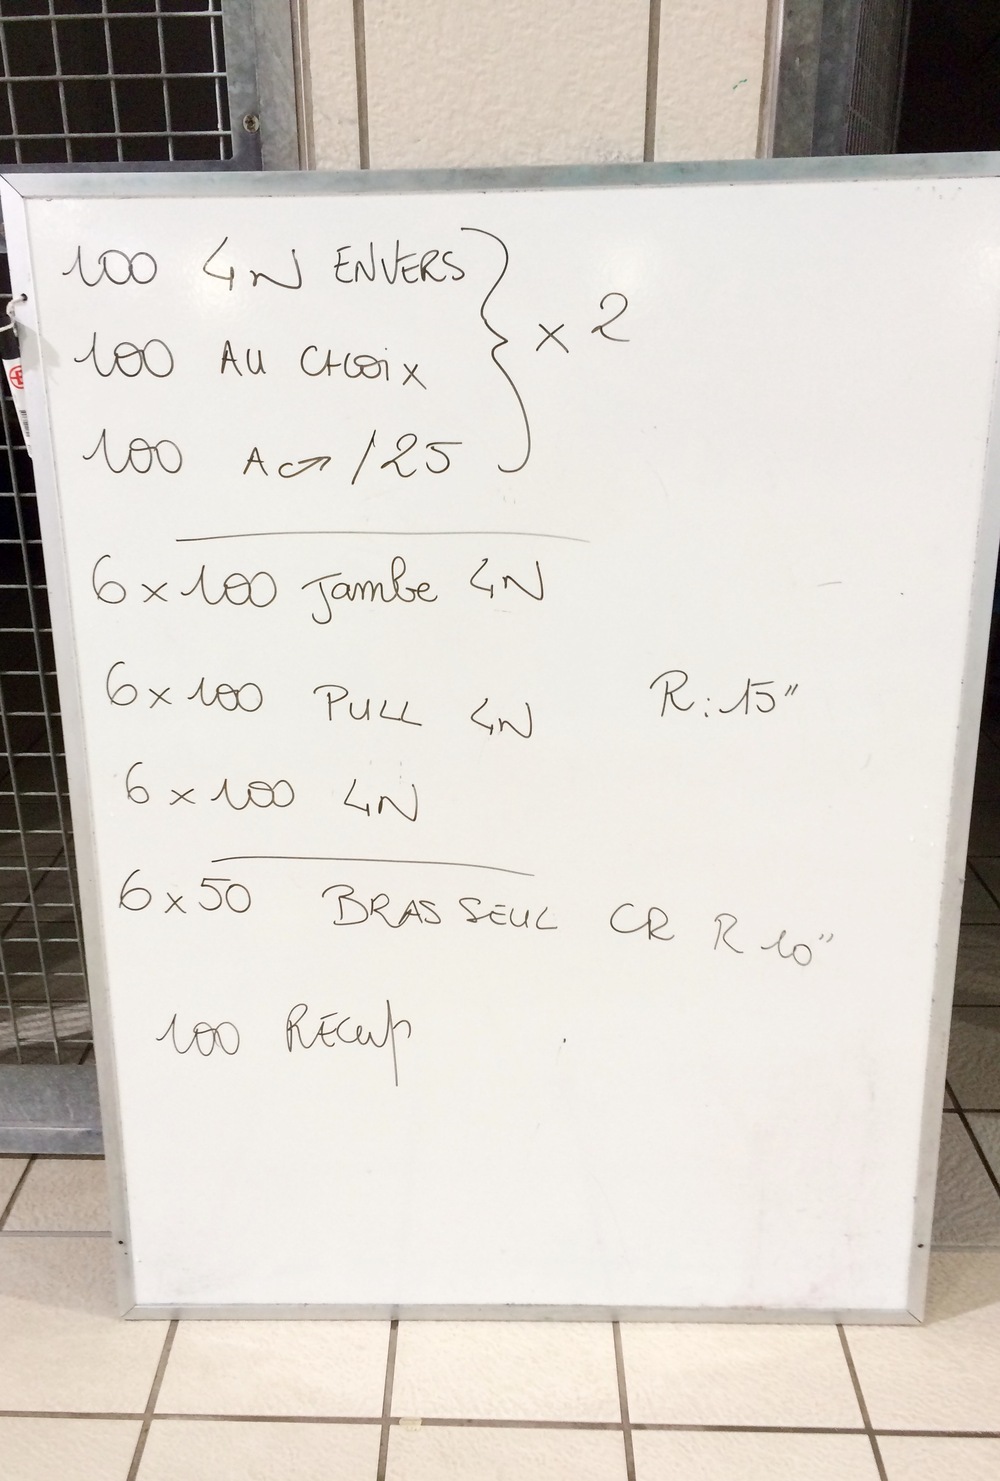 100 4N ENVERS } x 2
100 AU CHOIX
100 Ac↗ /25
6 x 100 Jambe 4N
6 x 100 PULL 4N R : 15"
6 x 100 4N
6 x 50 BRAS SEUL CR R 10"
100 RÉCUP